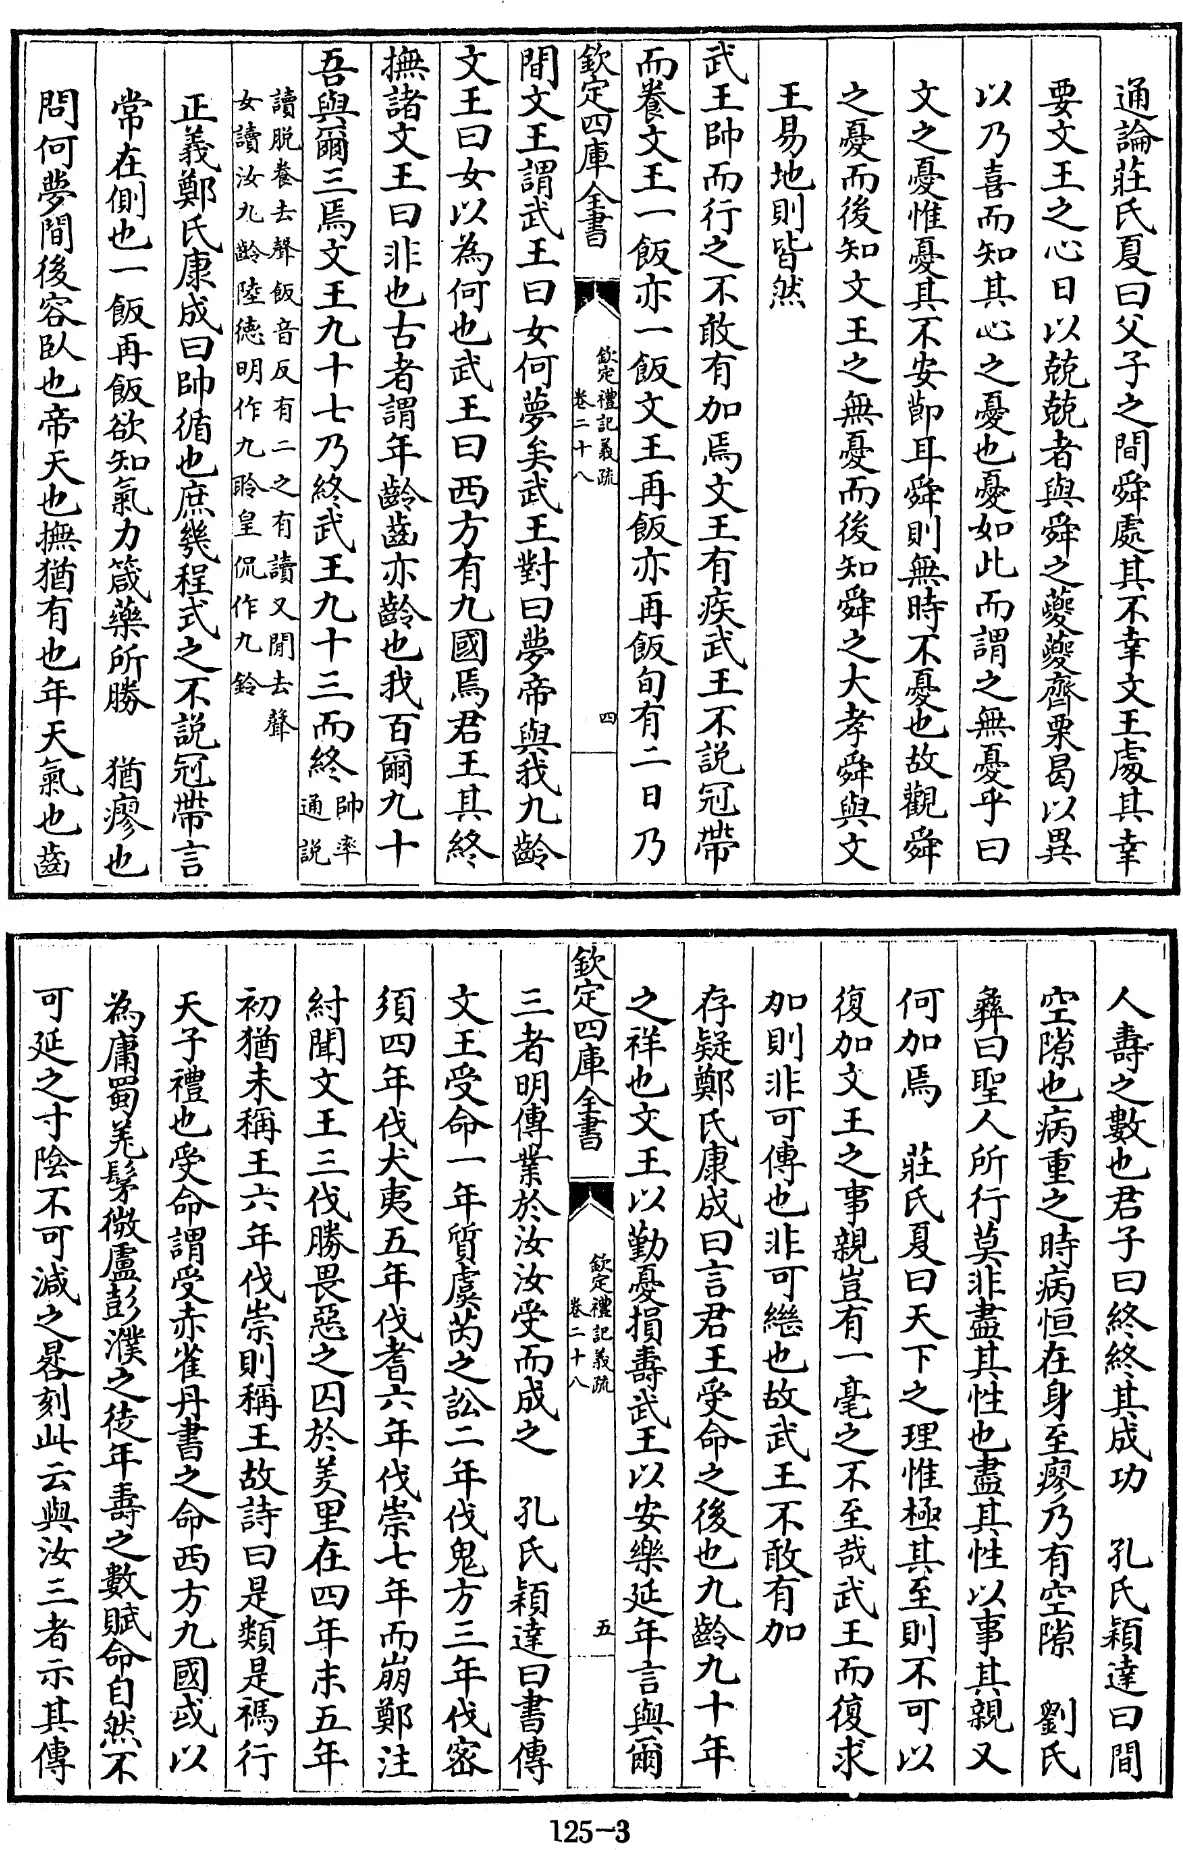 通論莊氏夏曰父子之間舜處其不幸文王處其幸
要文王之心日以兢兢者與舜之夔夔齊栗曷以異
以乃喜而知其心之憂也憂如此而謂之無憂乎曰
文之憂惟憂其不安節耳舜則無時不憂也故觀舜
之憂而後知文王之無憂而後知舜之大孝舜與文
王易地則皆然
武王帥而行之不敢有加焉文王有疾武王不說冠帶
而養文王一飯亦一飯文王再飯亦再飯旬有二日乃
欽定四庫全書
欽定禮記義疏
卷二十八
四
間文王謂武王曰女何夢矣武王對曰夢帝與我九齡
文王曰女以為何也武王曰西方有九國焉君王其終
撫諸文王曰非也古者謂年齡齒亦齡也我百爾九十
吾與爾三焉文王九十七乃終武王九十三而終帥率
通說
讀脫養去聲飯音反有二之有讀又間去聲
女讀汝九齡陸德明作九聆皇侃作九鈴
正義鄭氏康成曰帥循也庶幾程式之不說冠帶言
常在側也一飯再飯欲知氣力箴藥所勝 猶瘳也
問何夢間後容臥也帝天也撫猶有也年天氣也齒
人壽之數也君子曰終終其成功 孔氏穎達曰間
空隙也病重之時病恒在身至瘳乃有空隙 劉氏
彝曰聖人所行莫非盡其性也盡其性以事其親又
何加焉 莊氏夏曰天下之理惟極其至則不可以
復加文王之事親豈有一毫之不至哉武王而復求
加則非可傳也非可繼也故武王不敢有加
存疑鄭氏康成曰言君王受命之後也九齡九十年
之祥也文王以勤憂損壽武王以安樂延年言與爾
欽定四庫全書
欽定禮記義疏
卷二十八
五
三者明傳業於汝汝受而成之 孔氏穎達曰書傳
文王受命一年質虞芮之訟二年伐鬼方三年伐密
須四年伐犬夷五年伐耆六年伐崇七年而崩鄭注
紂聞文王三伐勝畏惡之囚於羑里在四年末五年
初猶未稱王六年伐崇則稱王故詩曰是類是禡行
天子禮也受命謂受赤雀丹書之命西方九國或以
為庸蜀羌髳微盧彭濮之徒年壽之數賦命自然不
可延之寸陰不可減之晷刻此云與汝三者示其傳
125-3